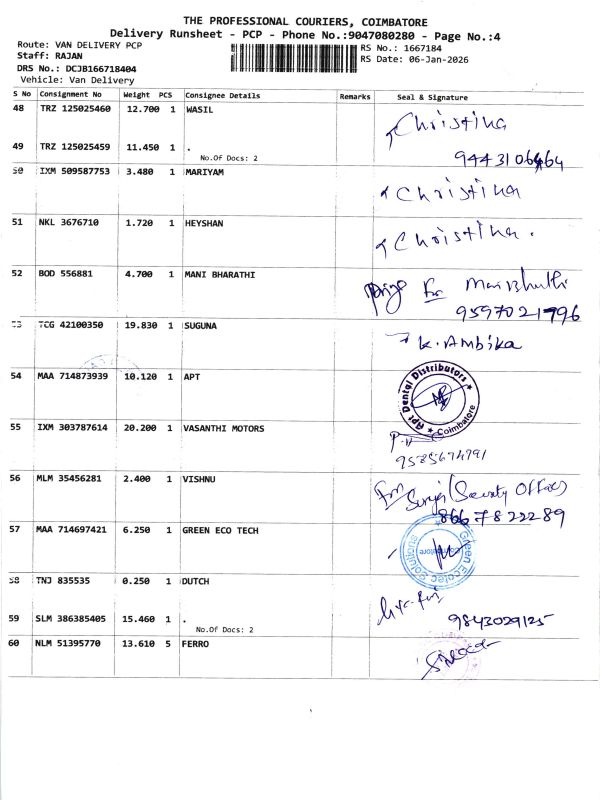 THE PROFESSIONAL COURIERS, COIMBATORE
Delivery Runsheet - PCP - Phone No.:9047080280 - Page No.:4
Route: VAN DELIVERY PCP
Staff: RAJAN
DRS No.: DCJB166718404
Vehicle: Van Delivery
RS No.: 1667184
RS Date: 06-Jan-2026
S No Consignment No Weight PCS Consignee Details Remarks Seal & Signature
48 TRZ 125025460 12.700 1 WASIL
Christina
49 TRZ 125025459 11.450 1 .
No.Of Docs: 2
9443106464
50 IXM 509587753 3.480 1 MARIYAM
Christina
51 NKL 3676710 1.720 1 HEYSHAN
Christina.
52 BOD 556881 4.700 1 MANI BHARATHI
For
9597021796
53 TCG 42100350 19.830 1 SUGUNA
K. Ambika
54 MAA 714873939 10.120 1 APT
Apt Dental Distributors
Coimbatore
55 IXM 303787614 20.200 1 VASANTHI MOTORS
9585674791
56 MLM 35456281 2.400 1 VISHNU
For (Security Officer)
8667822289
57 MAA 714697421 6.250 1 GREEN ECO TECH
Green Ecotec Solutions
58 TNJ 835535 0.250 1 DUTCH
59 SLM 386385405 15.460 1 .
No.Of Docs: 2
9843029125
60 NLM 51395770 13.610 5 FERRO